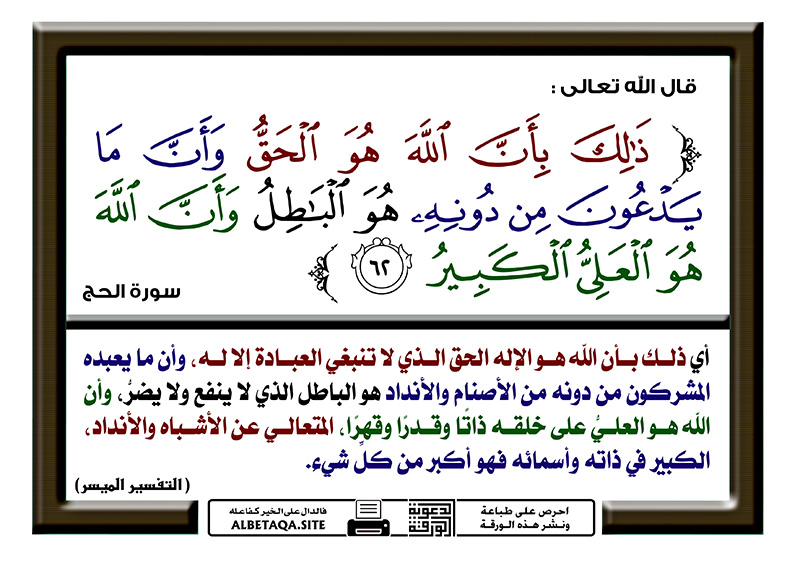 قال الله تعالى :
ذَٰلِكَ بِأَنَّ ٱللَّهَ هُوَ ٱلْحَقُّ وَأَنَّ مَا
يَدْعُونَ مِن دُونِهِۦ هُوَ ٱلْبَٰطِلُ وَأَنَّ ٱللَّهَ
هُوَ ٱلْعَلِىُّ ٱلْكَبِيرُ ٦٢
سورة الحج
أي ذلك بأن الله هو الإله الحق الذي لا تنبغي العبادة إلا له، وأن ما يعبده
المشركون من دونه من الأصنام والأنداد هو الباطل الذي لا ينفع ولا يضرُ، وأن
الله هو العليُّ على خلقه ذاتًا وقدرًا وقهرًا، المتعالي عن الأشباه والأنداد،
الكبير في ذاته وأسمائه فهو أكبر من كلِّ شيء.
(التفسير الميسر)
احرص على طباعة
ونشر هذه الورقة
الدعوية
الورقة
فالدال على الخير كفاعله
ALBETAQA.SITE